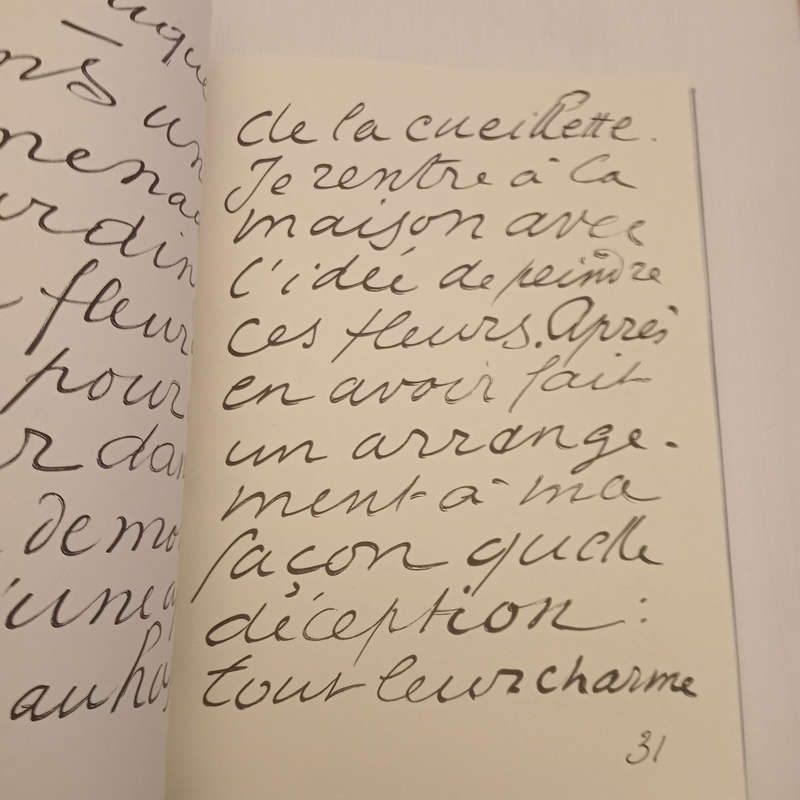 un
fleur
pour
de mo
au ha
de la cueillette.
Je rentre à la
maison avec
l'idée de peindre
ces fleurs. Après
en avoir fait
un arrange-
ment à ma
façon quelle
déception :
tout leur charme
31